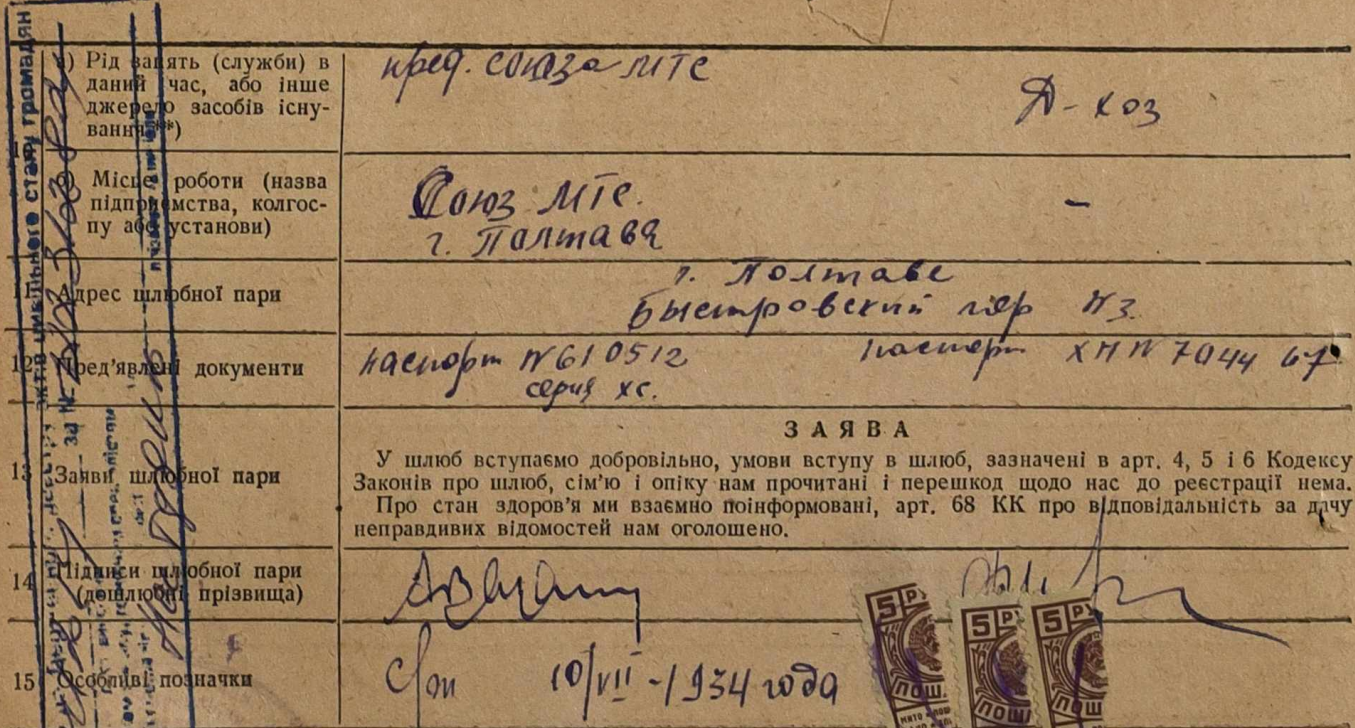 а) Рід занять (служби) в
даний час, або інше
джерело засобів існу-
вання **)
пред. союза МТС
Д-хоз
б) Місце роботи (назва
підприємства, колгос-
пу або установи)
Союз МТС.
г. Полтава
-
11 Адрес шлюбної пари
г. Полтаве
Быстровский пер №3
12 Пред'явлені документи
паспорт №610512
серия ХС.
паспорт ХН № 7044 67
13 Заяви шлюбної пари
ЗАЯВА
У шлюб вступаємо добровільно, умови вступу в шлюб, зазначені в арт. 4, 5 і 6 Кодексу
Законів про шлюб, сім'ю і опіку нам прочитані і перешкод щодо нас до реєстрації нема.
Про стан здоров'я ми взаємно поінформовані, арт. 68 КК про відповідальність за дачу
неправдивих відомостей нам оголошено.
14 Підписи шлюбної пари
(дошлюбні прізвища)
15 Особливі позначки
10/VII-1934 года
5 РУ
ПОШ
5 РУ
ПОШ
5 РУ
ПОШ
актів цивільного стану громадян
за №